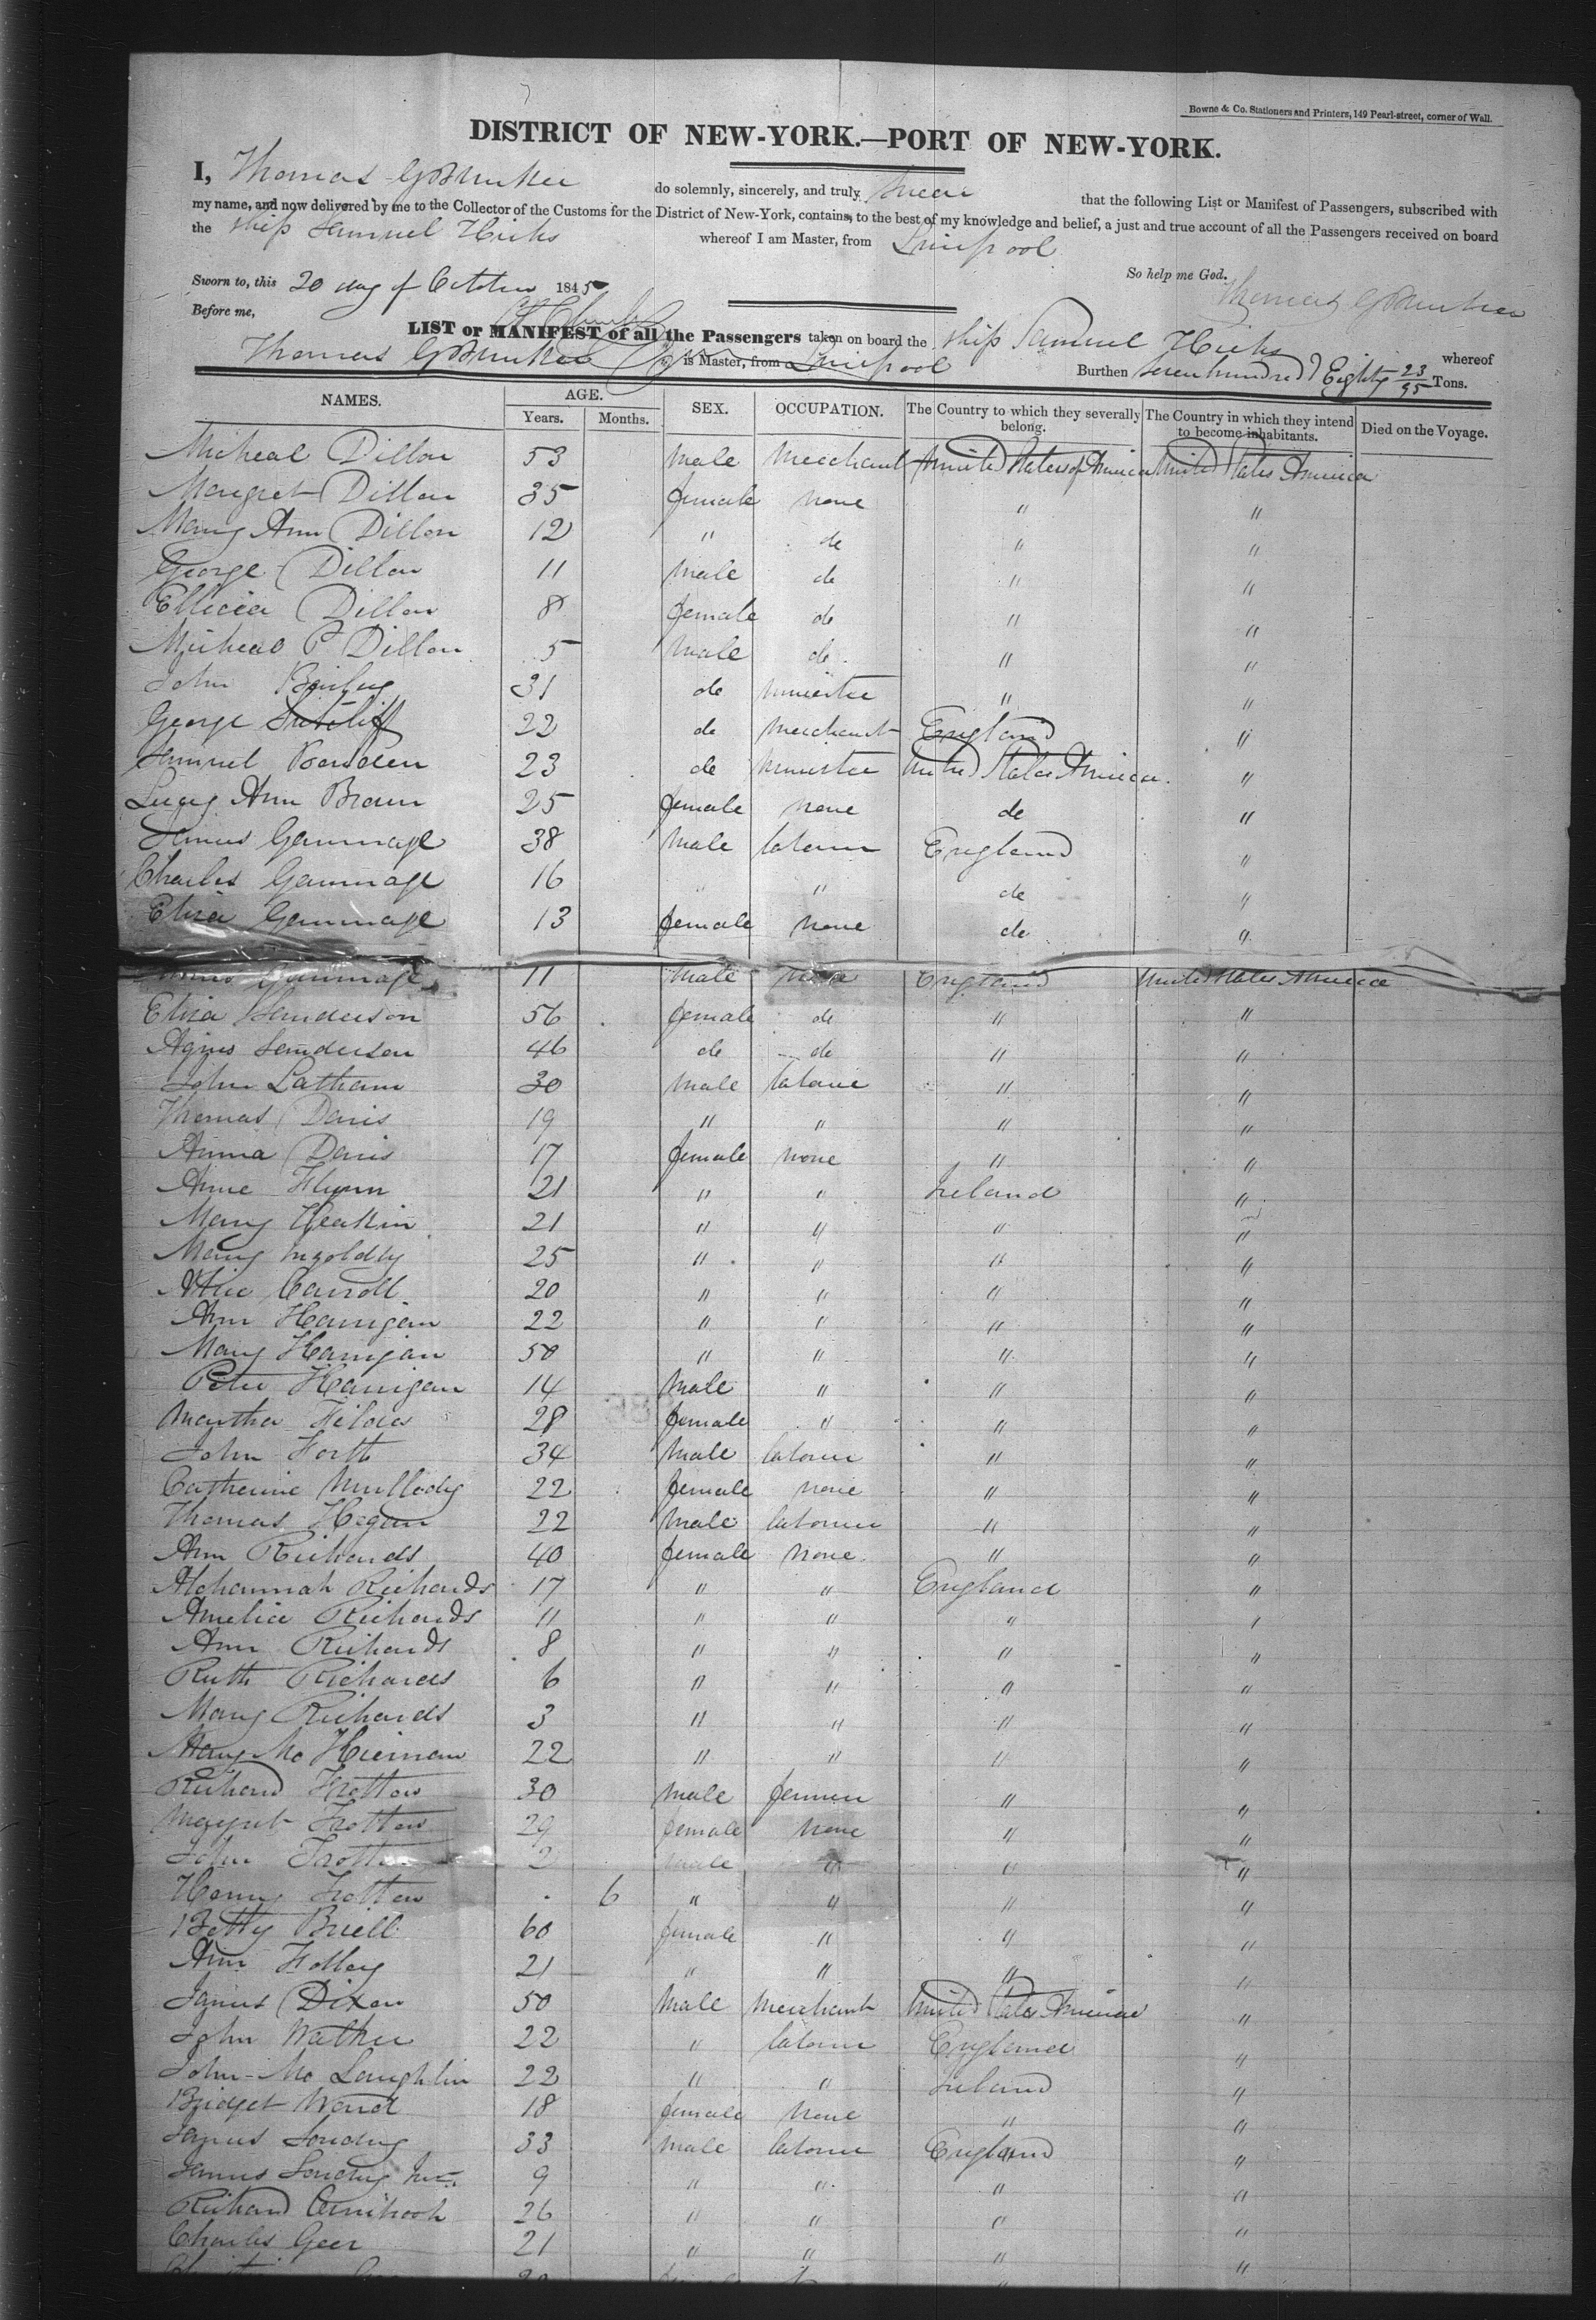 Bowne & Co. Stationers and Printers, 149 Pearl-street, corner of Wall.
DISTRICT OF NEW-YORK.—PORT OF NEW-YORK.
I, Thomas G Bunker do solemnly, sincerely, and truly swear that the following List or Manifest of Passengers, subscribed with
my name, and now delivered by me to the Collector of the Customs for the District of New-York, contains, to the best of my knowledge and belief, a just and true account of all the Passengers received on board
the ship Samuel Hicks whereof I am Master, from Liverpool
So help me God.
Sworn to, this 20 day of October 1845 Thomas G Bunker
Before me,
LIST or MANIFEST of all the Passengers taken on board the ship Samuel Hicks whereof
Thomas G Bunker is Master, from Liverpool Burthen seven hundred Eighty 23/95 Tons.
NAMES. AGE. Years. Months. SEX. OCCUPATION. The Country to which they severally belong. The Country in which they intend to become inhabitants. Died on the Voyage.
Micheal Dillon 53 male merchant United States of America United States America
Margret Dillon 35 female none " "
Mary Ann Dillon 12 " do " "
George Dillon 11 male do " "
Dillon 8 female do " "
Micheal P Dillon 5 male do " "
John 31 do minister " "
George Sutcliff 22 do merchant England "
Samuel 23 do minister United States America "
Lucy Ann Brown 25 female none do "
James Gammage 38 male labourer England "
Charles Gammage 16 " " do "
Eliza Gammage 13 female none do "
Gammage 11 male none England United States America
Eliza Sanderson 56 female do " "
Agnes Sanderson 46 do do " "
John Latham 30 male laborer " "
Thomas Davis 19 " " " "
Anna Davis 17 female none " "
Anne Flynn 21 " " Ireland "
Mary Heakin 21 " " " "
Mary Ingoldby 25 " " " "
Alice Carroll 20 " " " "
Ann Hanigan 22 " " " "
Mary Hanigan 50 " " " "
Peter Hanigan 14 male " " "
Martha 28 female " " "
John Forth 34 male laborer " "
Catherine Mullody 22 female none " "
Thomas Hegan 22 male labourer " "
Ann Richards 40 female none " "
Richards 17 " " England "
Amelia Richards 11 " " " "
Ann Richards 8 " " " "
Ruth Richards 6 " " " "
Mary Richards 3 " " " "
Mary Mc 22 " " " "
Richard Trotter 30 male farmer " "
Margret Trotter 29 female none " "
John Trotter 2 male " " "
Henry Trotter 6 " " " "
Betty Buell 60 female " " "
Ann Folley 21 " " " "
James Dixon 50 male merchant United States America "
John Mather 22 " laborer England "
John Mc Laughlin 22 " " Ireland "
Bridget Ward 18 female none " "
James 33 male laborer England "
James 9 " " " "
Richard 26 " " " "
Charles Geer 21 " " " "